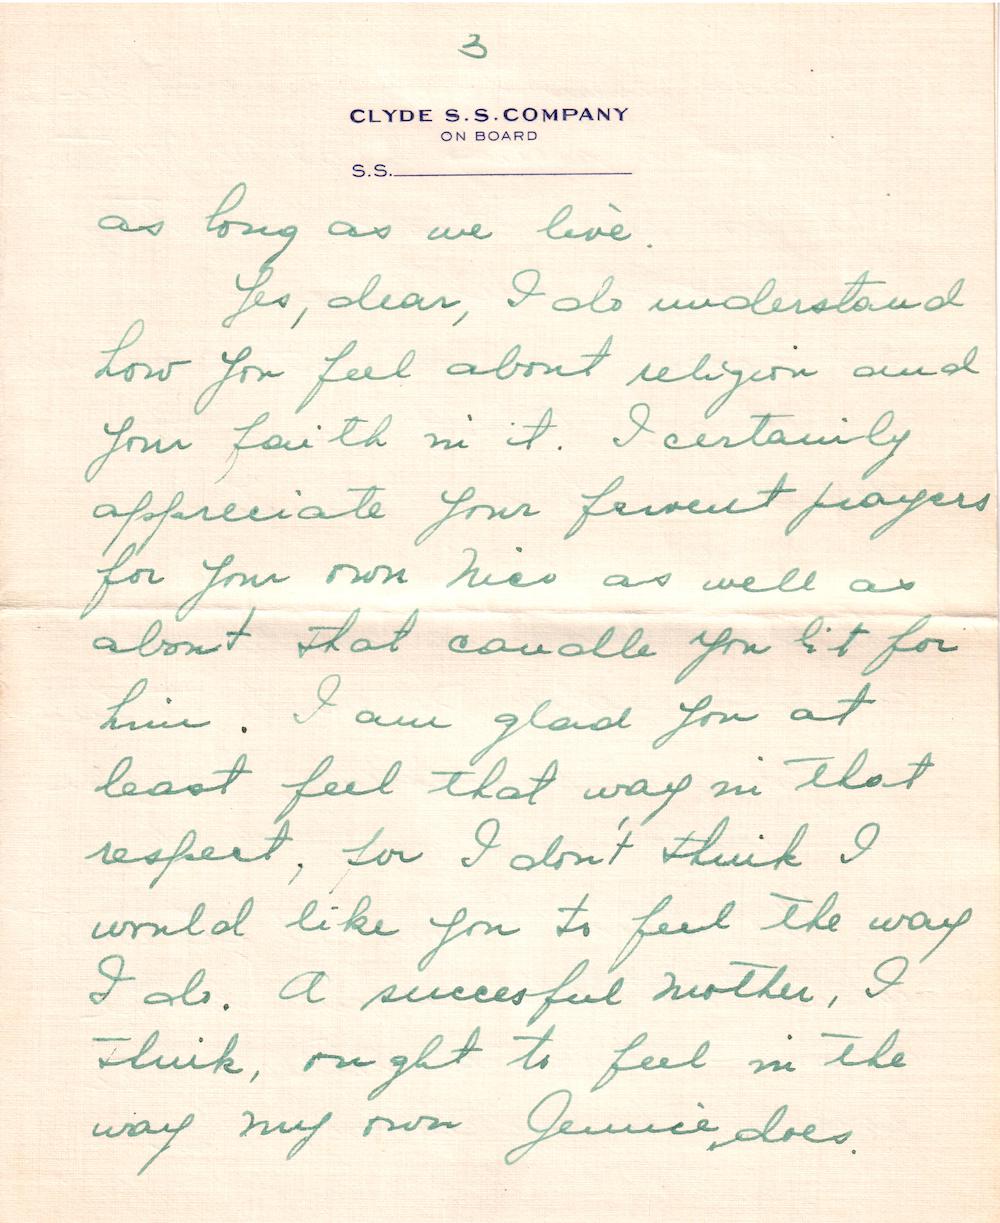 3
CLYDE S.S. COMPANY
ON BOARD
S.S.
as long as we live.
Yes, dear, I do understand
how you feel about religion and
your faith in it. I certainly
appreciate your fervent prayers
for your own Nico as well as
about that candle you lit for
him. I am glad you at
least feel that way in that
respect, for I don't think I
would like you to feel the way
I do. A succesful mother, I
think, ought to feel in the
way my own Jennie, does.